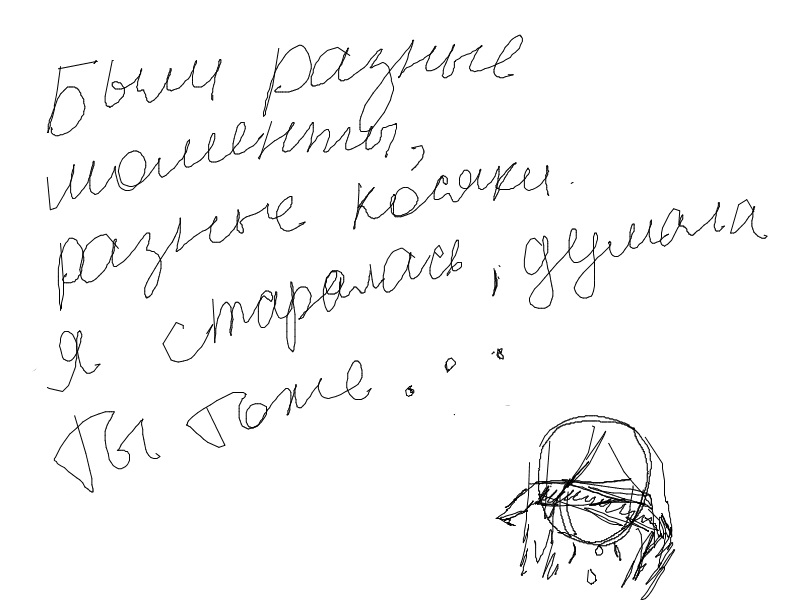 Были разные
моменты,
разные косяки.
я старалась, думала
ты тоже...